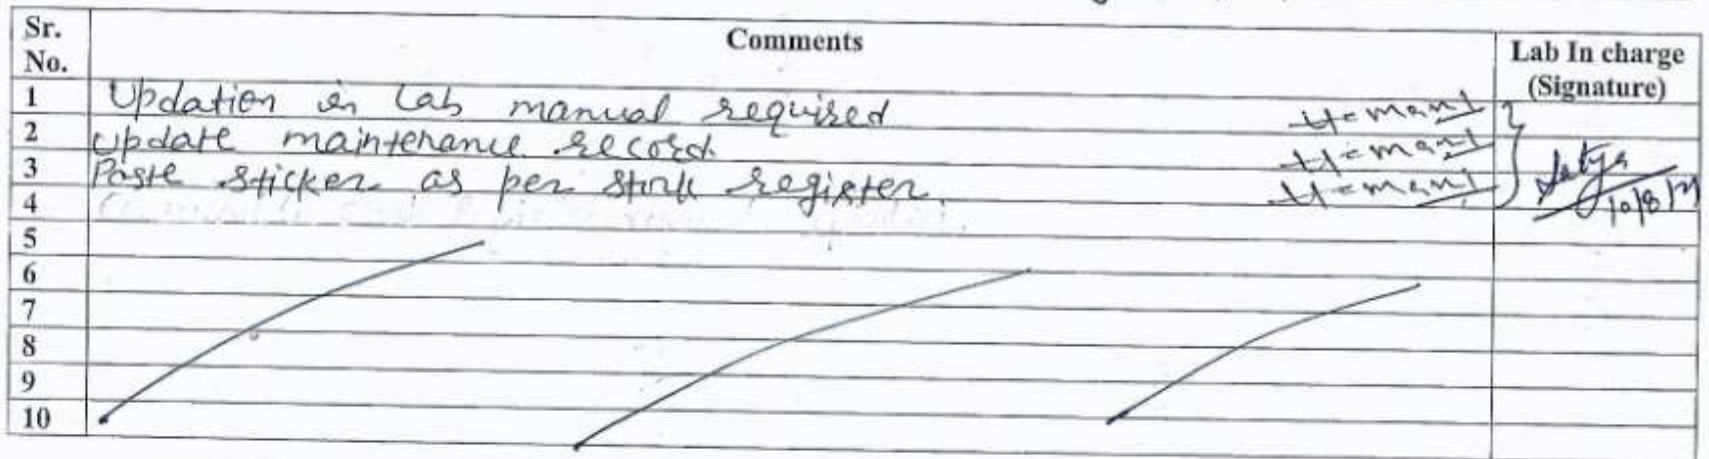 Sr. No. Comments Lab In charge (Signature)
1 Updation in Lab manual required
2 Update maintenance record.
3 Paste sticker as per stock register.
4
5
6
7
8
9
10
10/8/